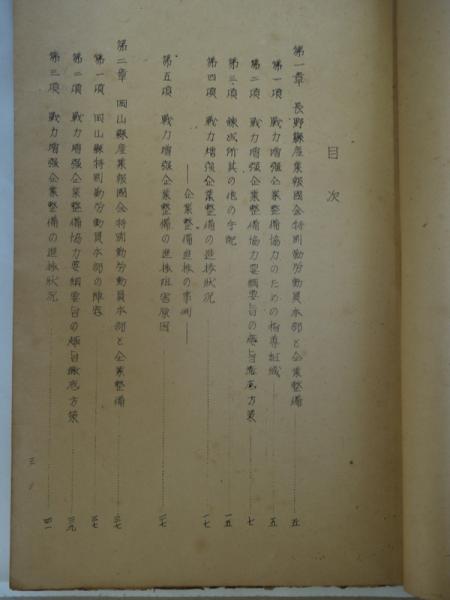 目次
第一章 長野縣産業報國会特別勤労動員本部と企業整備 五
第一項 戦力増强企業整備協力のための指導組織 五
第二項 戦力増强企業整備協力要綱要旨の趣旨徹底方策 七
第三項 錬成所其の他の手配 一五
第四項 戦力増强企業整備の進捗状況 一七
——企業整備進捗の事例——
第五項 戦力増强企業整備の進捗阻害原因 二七
第二章 岡山縣産業報國会特別勤労動員本部と企業整備 三七
第一項 岡山縣特別勤労動員本部の陣容 三七
第二項 戦力増强企業整備協力要綱要旨の趣旨徹底方策 三九
第三項 戦力増强企業整備の進捗状況 四一
三